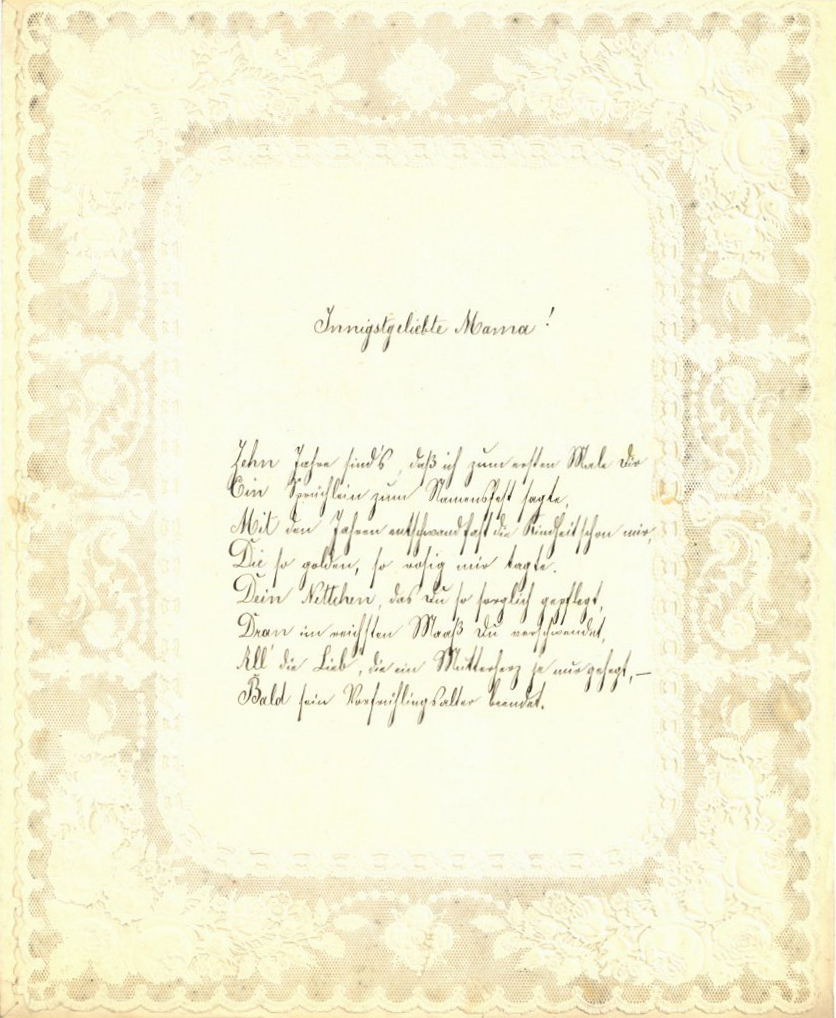 Innigstgeliebte Mama!
Zehn Jahre sind's, daß ich zum ersten Male Dir
Ein Sprüchlein zum Namensfest sagte,
Mit den Jahren entschwand fast die Kindheit schon mir,
Die so golden, so rosig mir tagte.
Dein Nettchen, das Du so sorglich gepflegt,
Dran im reichsten Maaß Du verschwendet,
All' die Lieb', die ein Mutterherz je nur gehegt, —
Bald sein Vorfrühlingsalter beendet.